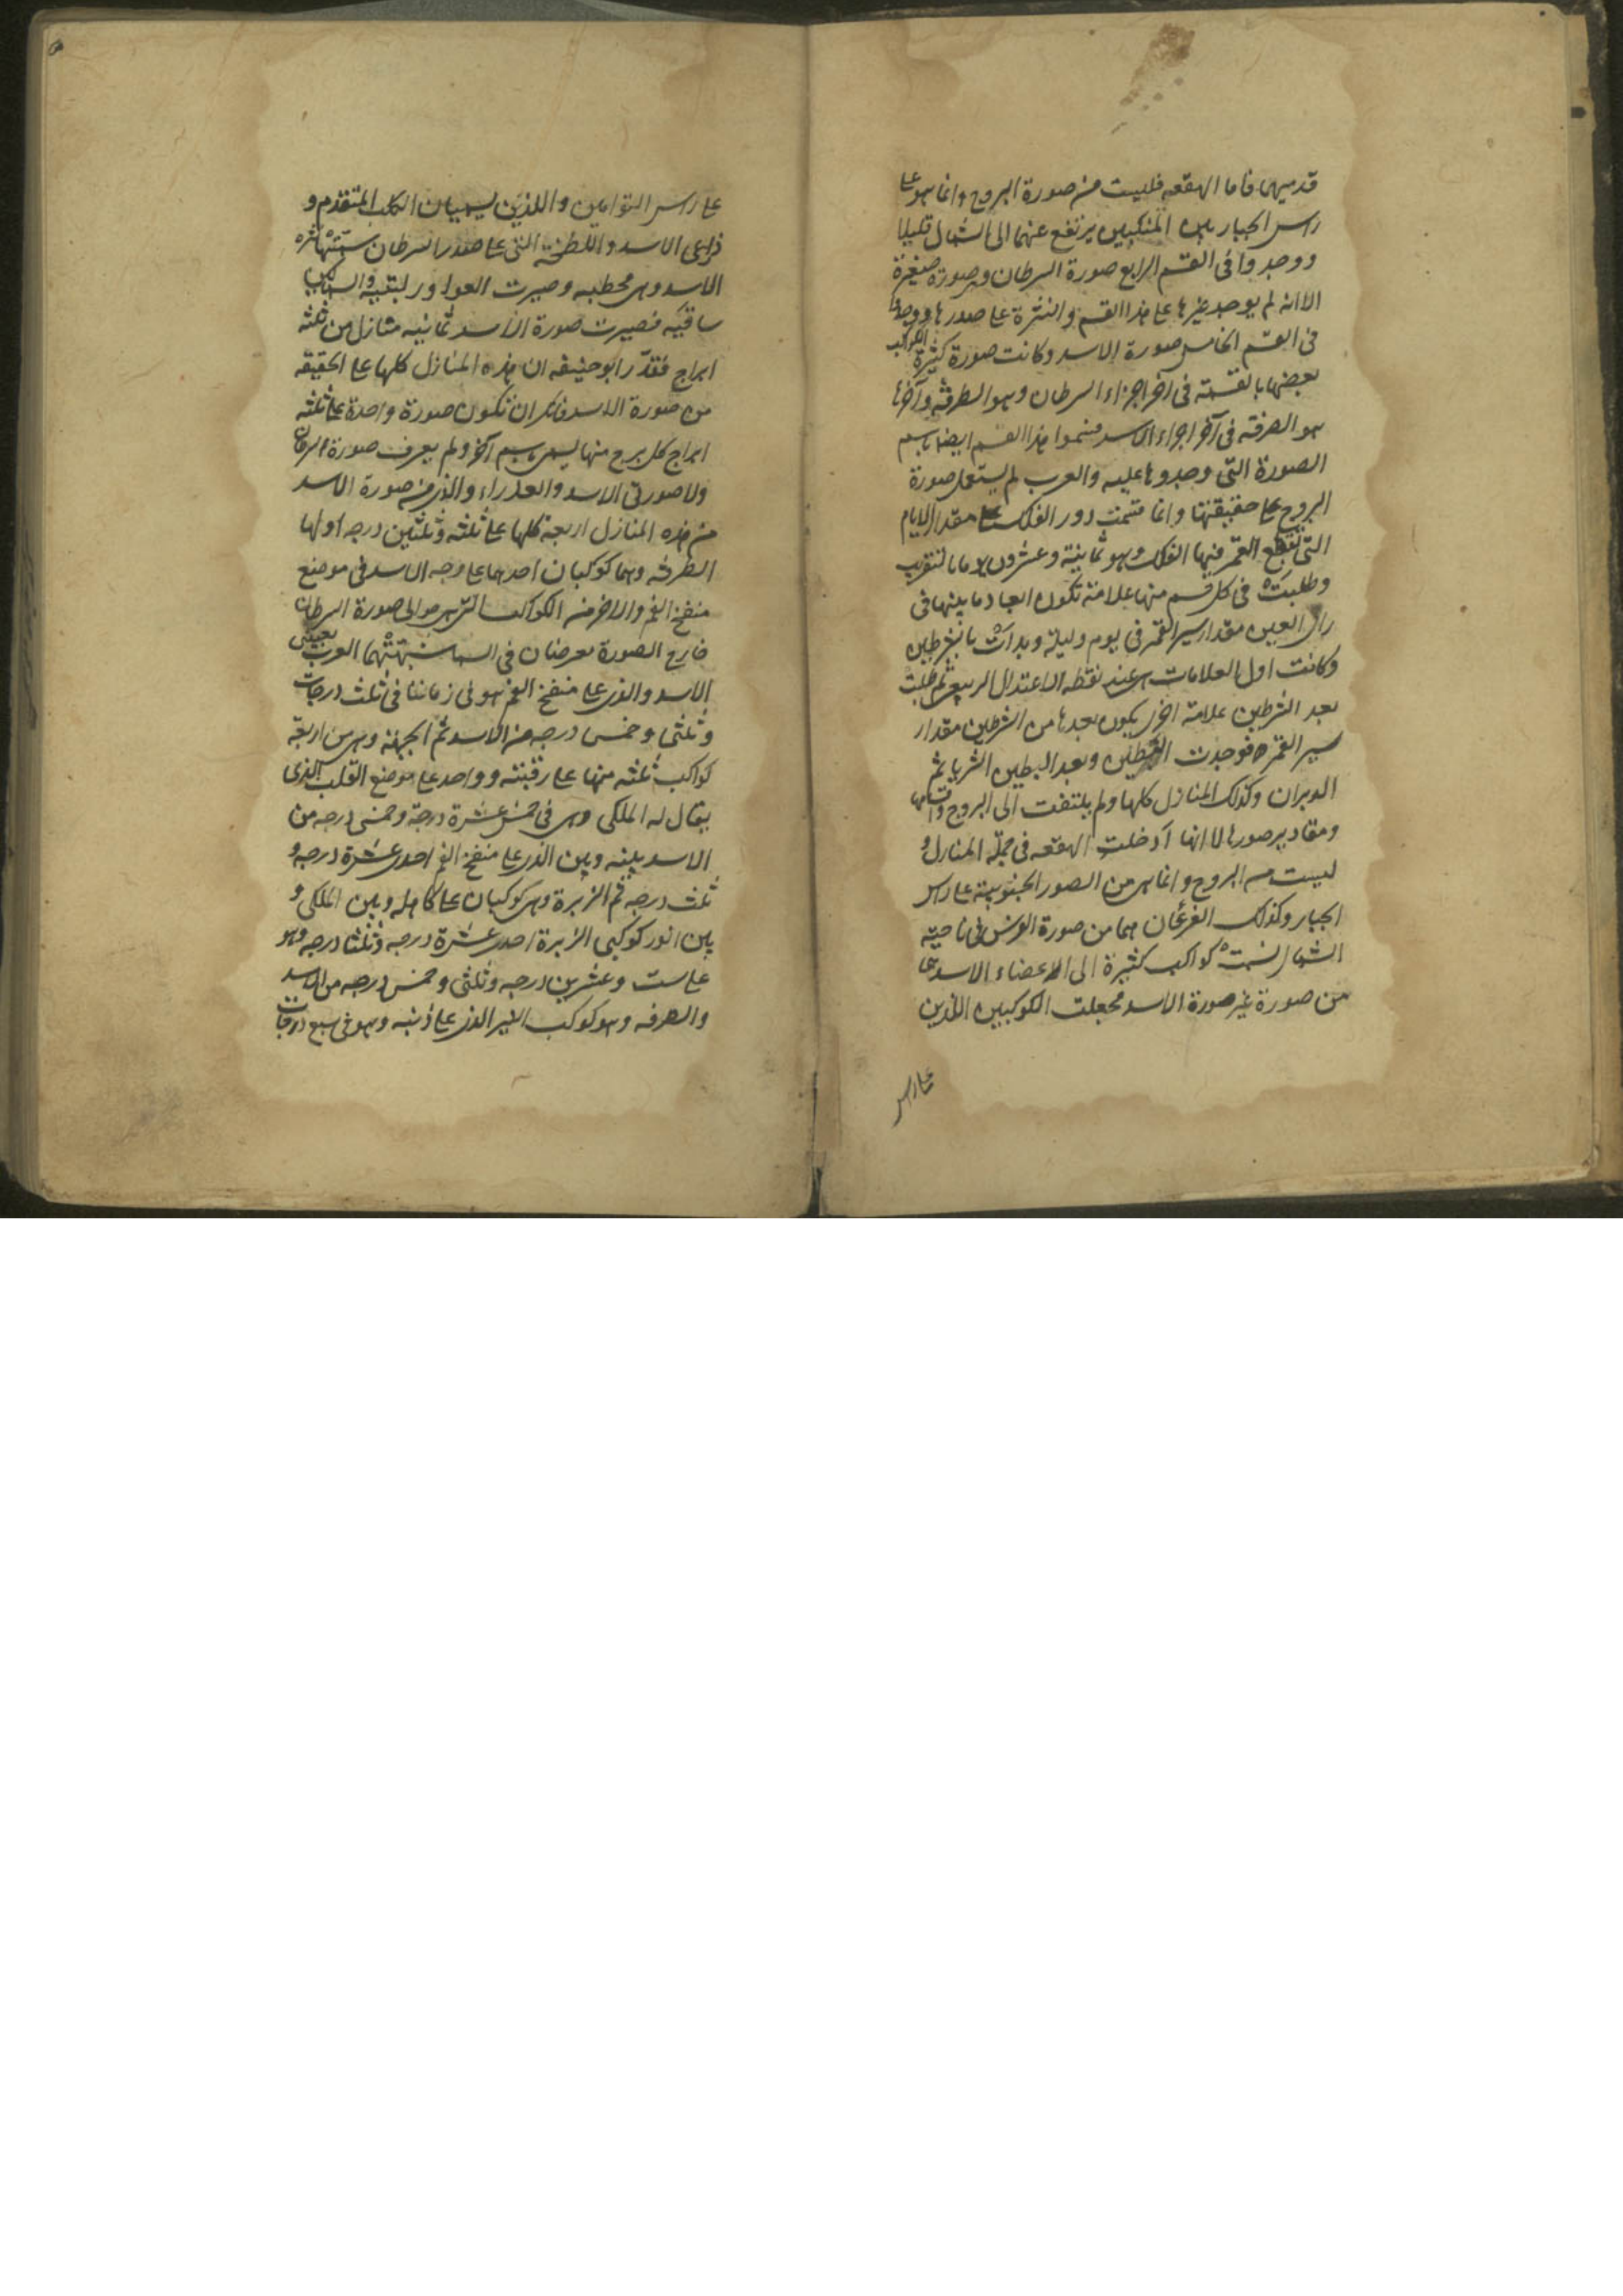 قدميهما فاما الهقعه فليست من صورة البروج وانما هو على
راس الجبار بين المنكبين يرتفع عنهما الى الشمال قليلا
ووجدوا فى القسم الرابع صورة السرطان وصورة صغيرة
الا انه لم يوجد غيرها على هذا القسم والنثرة على صدرها ووجدوا
فى القسم الخامس صورة الاسد وكانت صورة كثيرة الكواكب
بعضها بالقسمة فى آخر اجزاء السرطان وهو الطرفه وآخرها
هو الصرفة فى آخر اجزاء الاسد فسموا هذا القسم ايضا باسم
الصورة التى وجدوها عليه والعرب لم يستعمل صورة
البروج على حقيقتها وانما قسمت دور الفلك على مقدار الايام
التى يقطع القمر فيها الفلك وهو ثمانية وعشرون يوما بالتقريب
وطلبت فى كل قسم منها علامة تكون ابعاد ما بينها فى
راى العين مقدار سير القمر فى يوم وليلة وبدات بالشرطين
وكانت اول العلامات من عند نقطه الاعتدال الربيعى ثم طلبت
بعد الشرطين علامة اخرى يكون بعدها من الشرطين مقدار
سير القمر فوجدت البطين وبعد البطين الثريا ثم
الدبران وكذلك المنازل كلها ولم يلتفت الى البروج واقسامها
ومقادير صورها لا انها ادخلت الهقعه فى جملة المنازل و
ليست من البروج وانما هى من الصور الجنوبية على راس
الجبار وكذلك الفرغان هما من صورة الفرس فى ناحية
الشمال نسبت كواكب كثيرة الى اعضاء الاسد هى
من صورة غير صورة الاسد فجعلت الكوكبين اللذين
على راس
على راس التوامين واللذين يسميان الكلب المتقدم و
ذراعى الاسد واللطخة التى على صدر السرطان سمتها نثره
الاسد وهى مخطمه وصيرت العوا وركبتيه والسماكين
ساقيه فصيرت صورة الاسد ثمانيه منازل من ثلثه
ابراج فقدّر ابو حنيفه ان هذه المنازل كلها على الحقيقه
من صورة الاسد فانكر ان تكون صورة واحدة على ثلثه
ابراج كل برج منها يسمى باسم آخر ولم يعرف صورة السرطان
ولا صورتى الاسد والعذراء والذى من صورة الاسد
من هذه المنازل اربعة كلها على ثلثه وثلثين درجه اولها
الطرفه وهما كوكبان احدهما على وجه الاسد فى موضع
منفخ الفم والاخر من الكواكب التى هى حوالى صورة السرطان
خارج الصورة معرضان فى السما شبهتهما العرب بعينى
الاسد والذى على منفخ الفم هو فى زماننا فى ثلث درجات
وثلثى وخمس درجه من الاسد ثم الجبهة وهى من اربعة
كواكب ثلثه منها على رقبته وواحد على موضع القلب الذى
يقال له الملكى وهى فى خمس عشرة درجة وخمسى درجه من
الاسد بينه وبين الذى على منفخ الفم احدى عشرة درجه و
ثلث درجه ثم الزبرة وهى كوكبان على كاهله وبين الملكى و
بين انور كوكبى الزبرة احدى عشرة درجه وثلثا درجه وهو
على ست وعشرين درجه وثلثى وخمس درجه من الاسد
والصرفه وهو كوكب النير الذى على ذنبه وهو فى سبع درجات